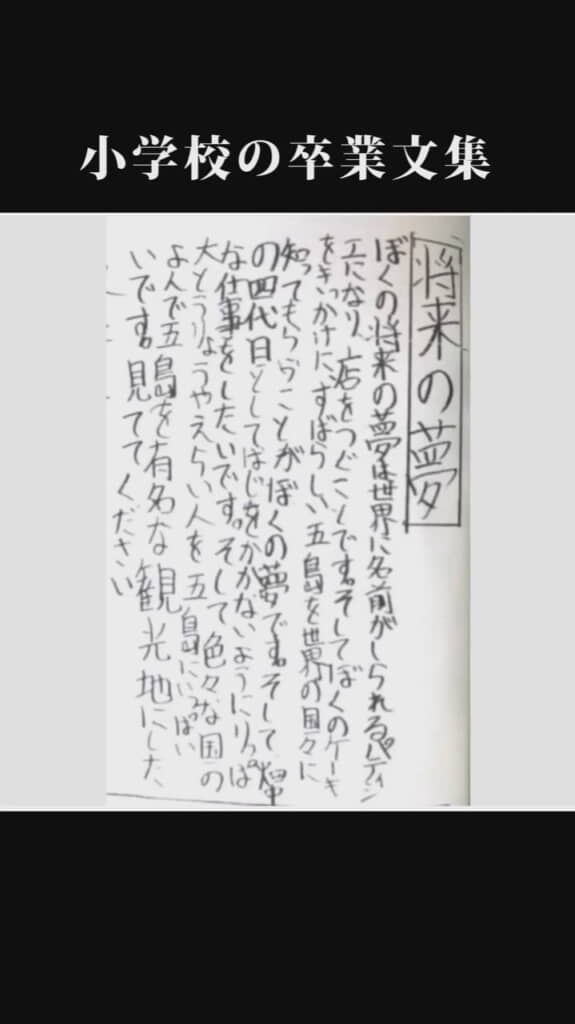 小学校の卒業文集
将来の夢
ぼくの将来の夢は世界に名前がしられるパティシ
エになり、店をつぐことです。そしてぼくのケーキ
をきっかけに、すばらしい五島を世界の国々に
知ってもらうことがぼくの夢です。そして、畑中
の四代目としてはじをかかないようにりっぱ
な仕事をしたいです。そして色々な国の
大とうりょうやえらい人を五島にいっぱい
よんで五島を有名な観光地にした
いです。見ててください